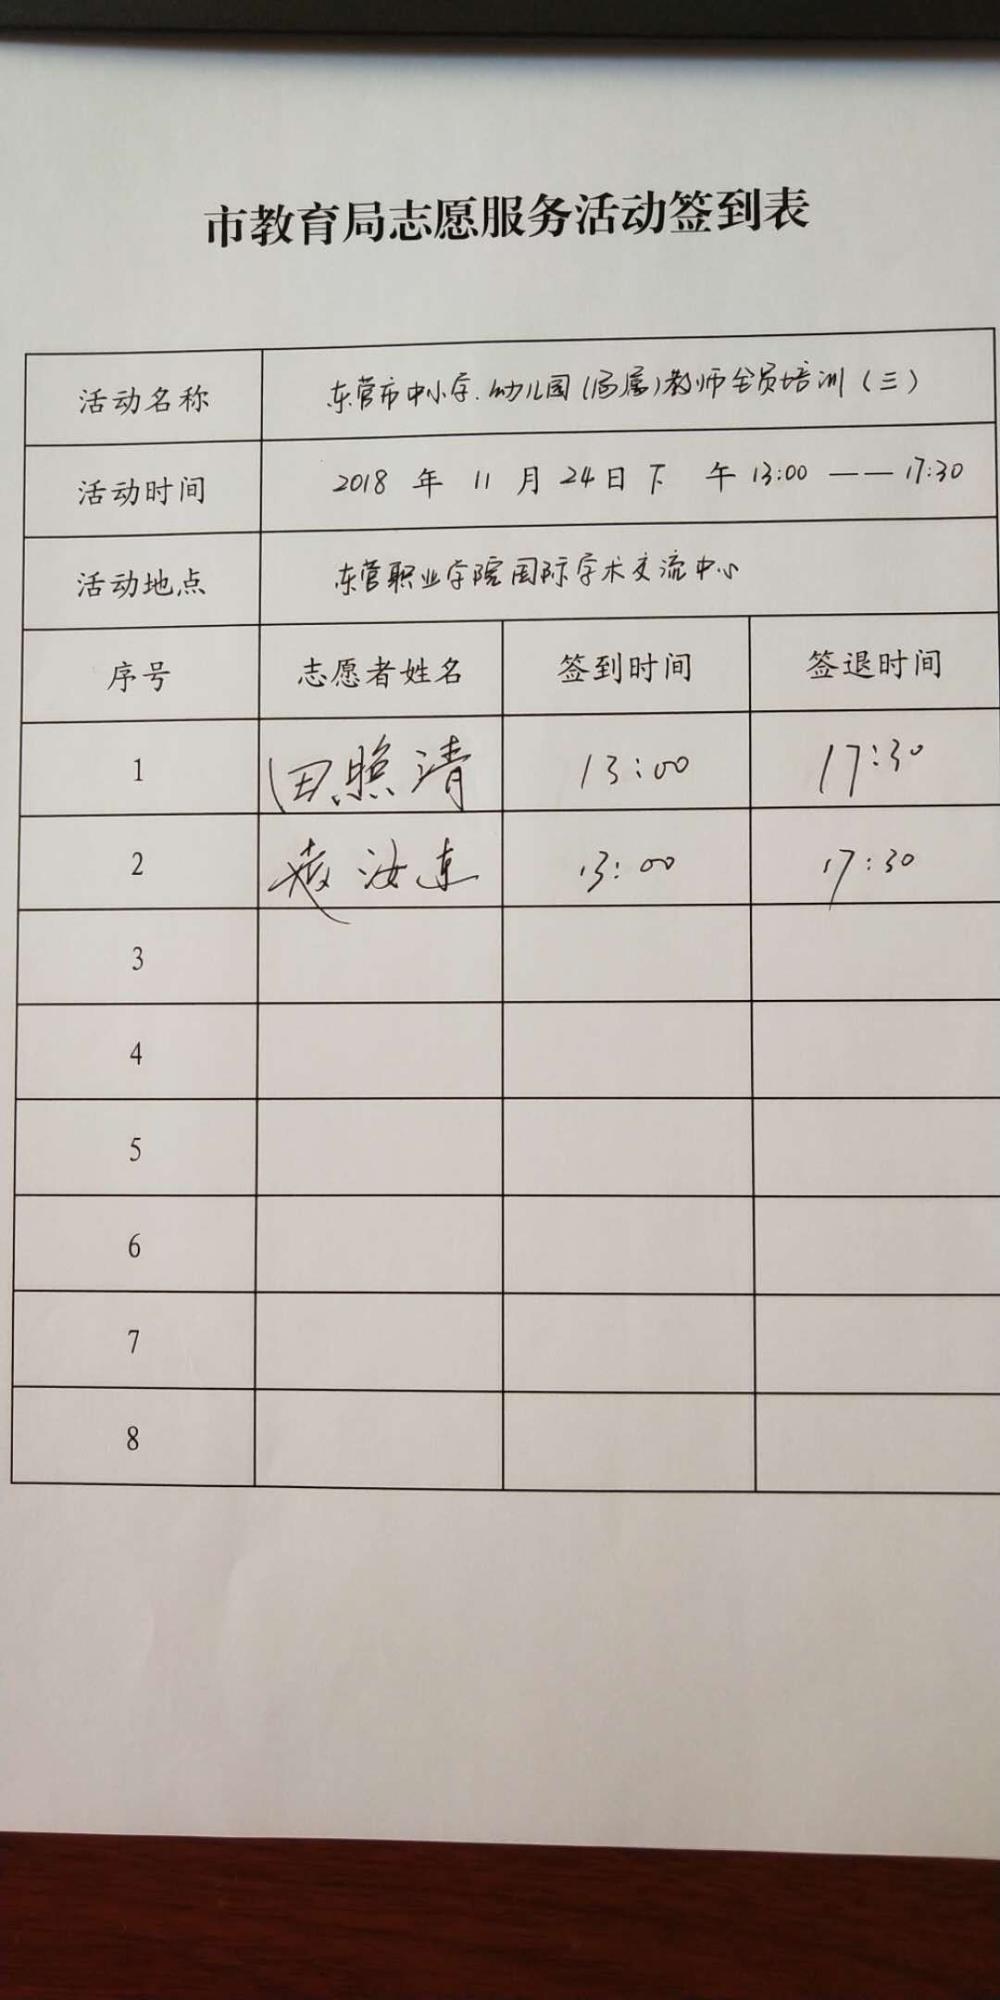 市教育局志愿服务活动签到表
活动名称 东营市中小学.幼儿园(局属)教师全员培训(三)
活动时间 2018 年 11 月 24日 下 午 13:00 —— 17:30
活动地点 东营职业学院国际学术交流中心
序号 志愿者姓名 签到时间 签退时间
1 田照清 13:00 17:30
2 汝 13:00 17:30
3
4
5
6
7
8